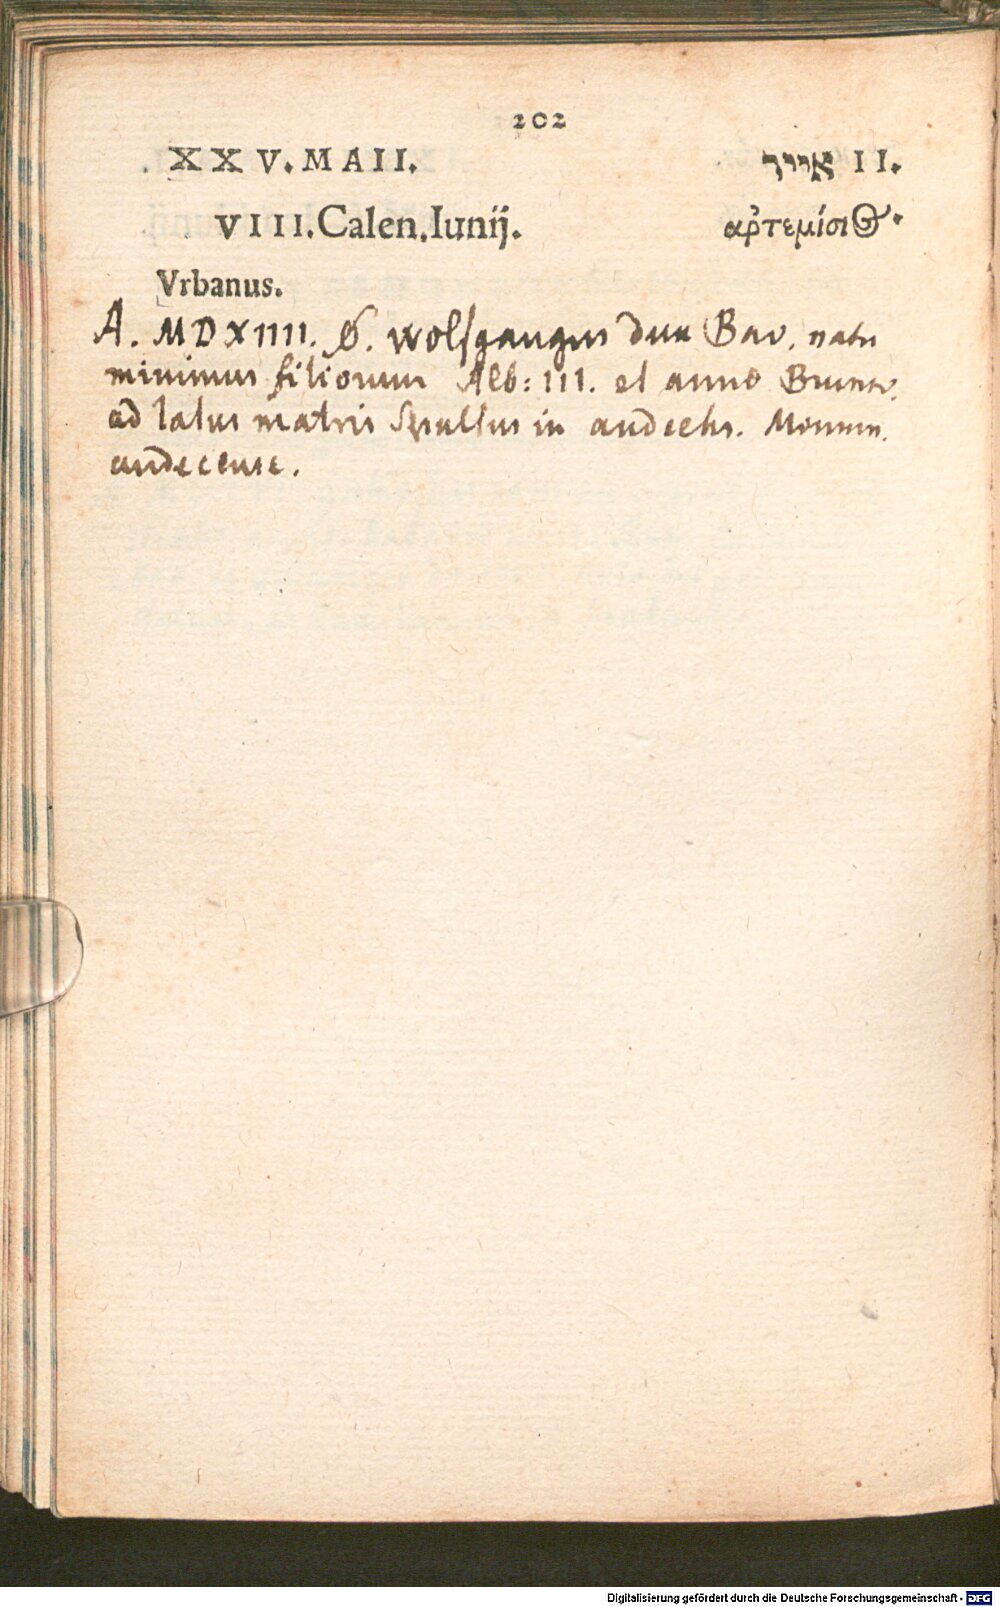 202
XXV. MAII. אייר II.
VIII. Calen. Iunij. αρτεμίσιος.
Vrbanus.
A. MDXIIII. Ø. Wolfgangus dux Bav. natu
minimus filiorum Alb: III. et anne Brunsv.
ad latus matris sepultus in andechs. Monum.
andecense.
Digitalisierung gefördert durch die Deutsche Forschungsgemeinschaft - DFG